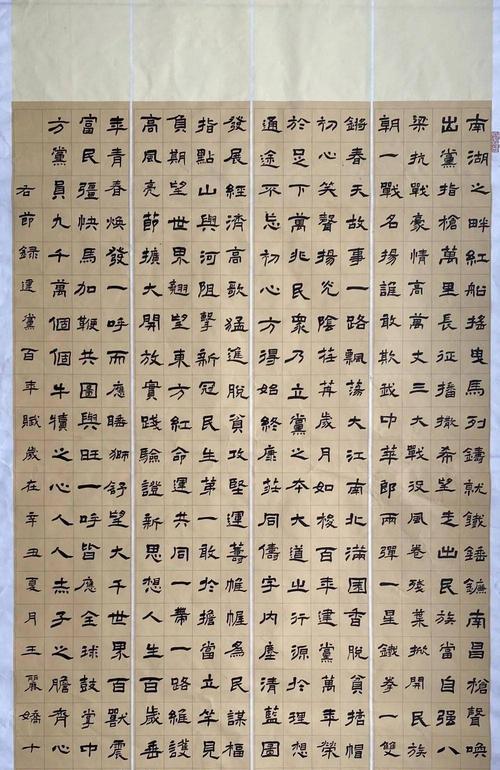 南湖之畔紅船摇曳馬列鑄就鐵錘鐮南昌槍聲喚
出黨指槍萬里長征播撒希望走出民族當自强八
梁抗戰豪情高萬丈三大戰役風卷殘葉掀開民族
朝一戰名揚誰敢欺我中華郎兩彈一星鐵拳一雙
鏘春天故事一路飄蕩大江南北滿園香脱貧掂帽
初心笑聲揚光陰荏苒歲月如梭百年建黨萬年榮
於足下萬兆民衆乃立黨之本大道之行源於理想
通途不忘初心方得始終康莊同儔宇内塵清藍圖
發展經濟高歌猛進脱貧攻堅運籌帷幄為民謀福
指點山與河阻擊新冠民生第一敢於擔當立竿見
負期望世界翹望東方紅命運共同一帶一路維護
高風亮節擴大開放實踐驗證新思想人生百歲垂
年青春焕發一呼而應睡獅舒望大千世界百獸震
富民强快馬加鞭共圖興旺一呼皆應全球鼓掌中
方黨員九千萬個個牛犢之心人人赤子之膽齊心
右節録建黨百年賦歲在辛丑夏月王麗嬌十